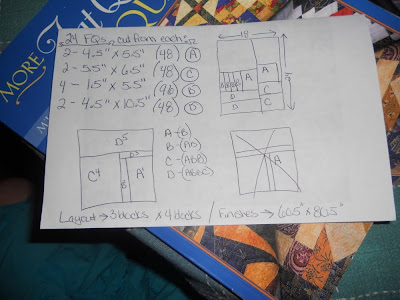 24 FQs, cut from each:
2 - 4.5" x 5.5" (48) A
2 - 5.5" x 6.5" (48) C
4 - 1.5" x 5.5"
2 - 4.5" x 10.5" (48) D
18
A
A
C
D
C
D
D5
C4
A1
A-(B)
B-(AD)
C-(ADB)
A
Layout → 3 blocks x 4 blocks / Finishes → 60.5" x 80.5"
MORE